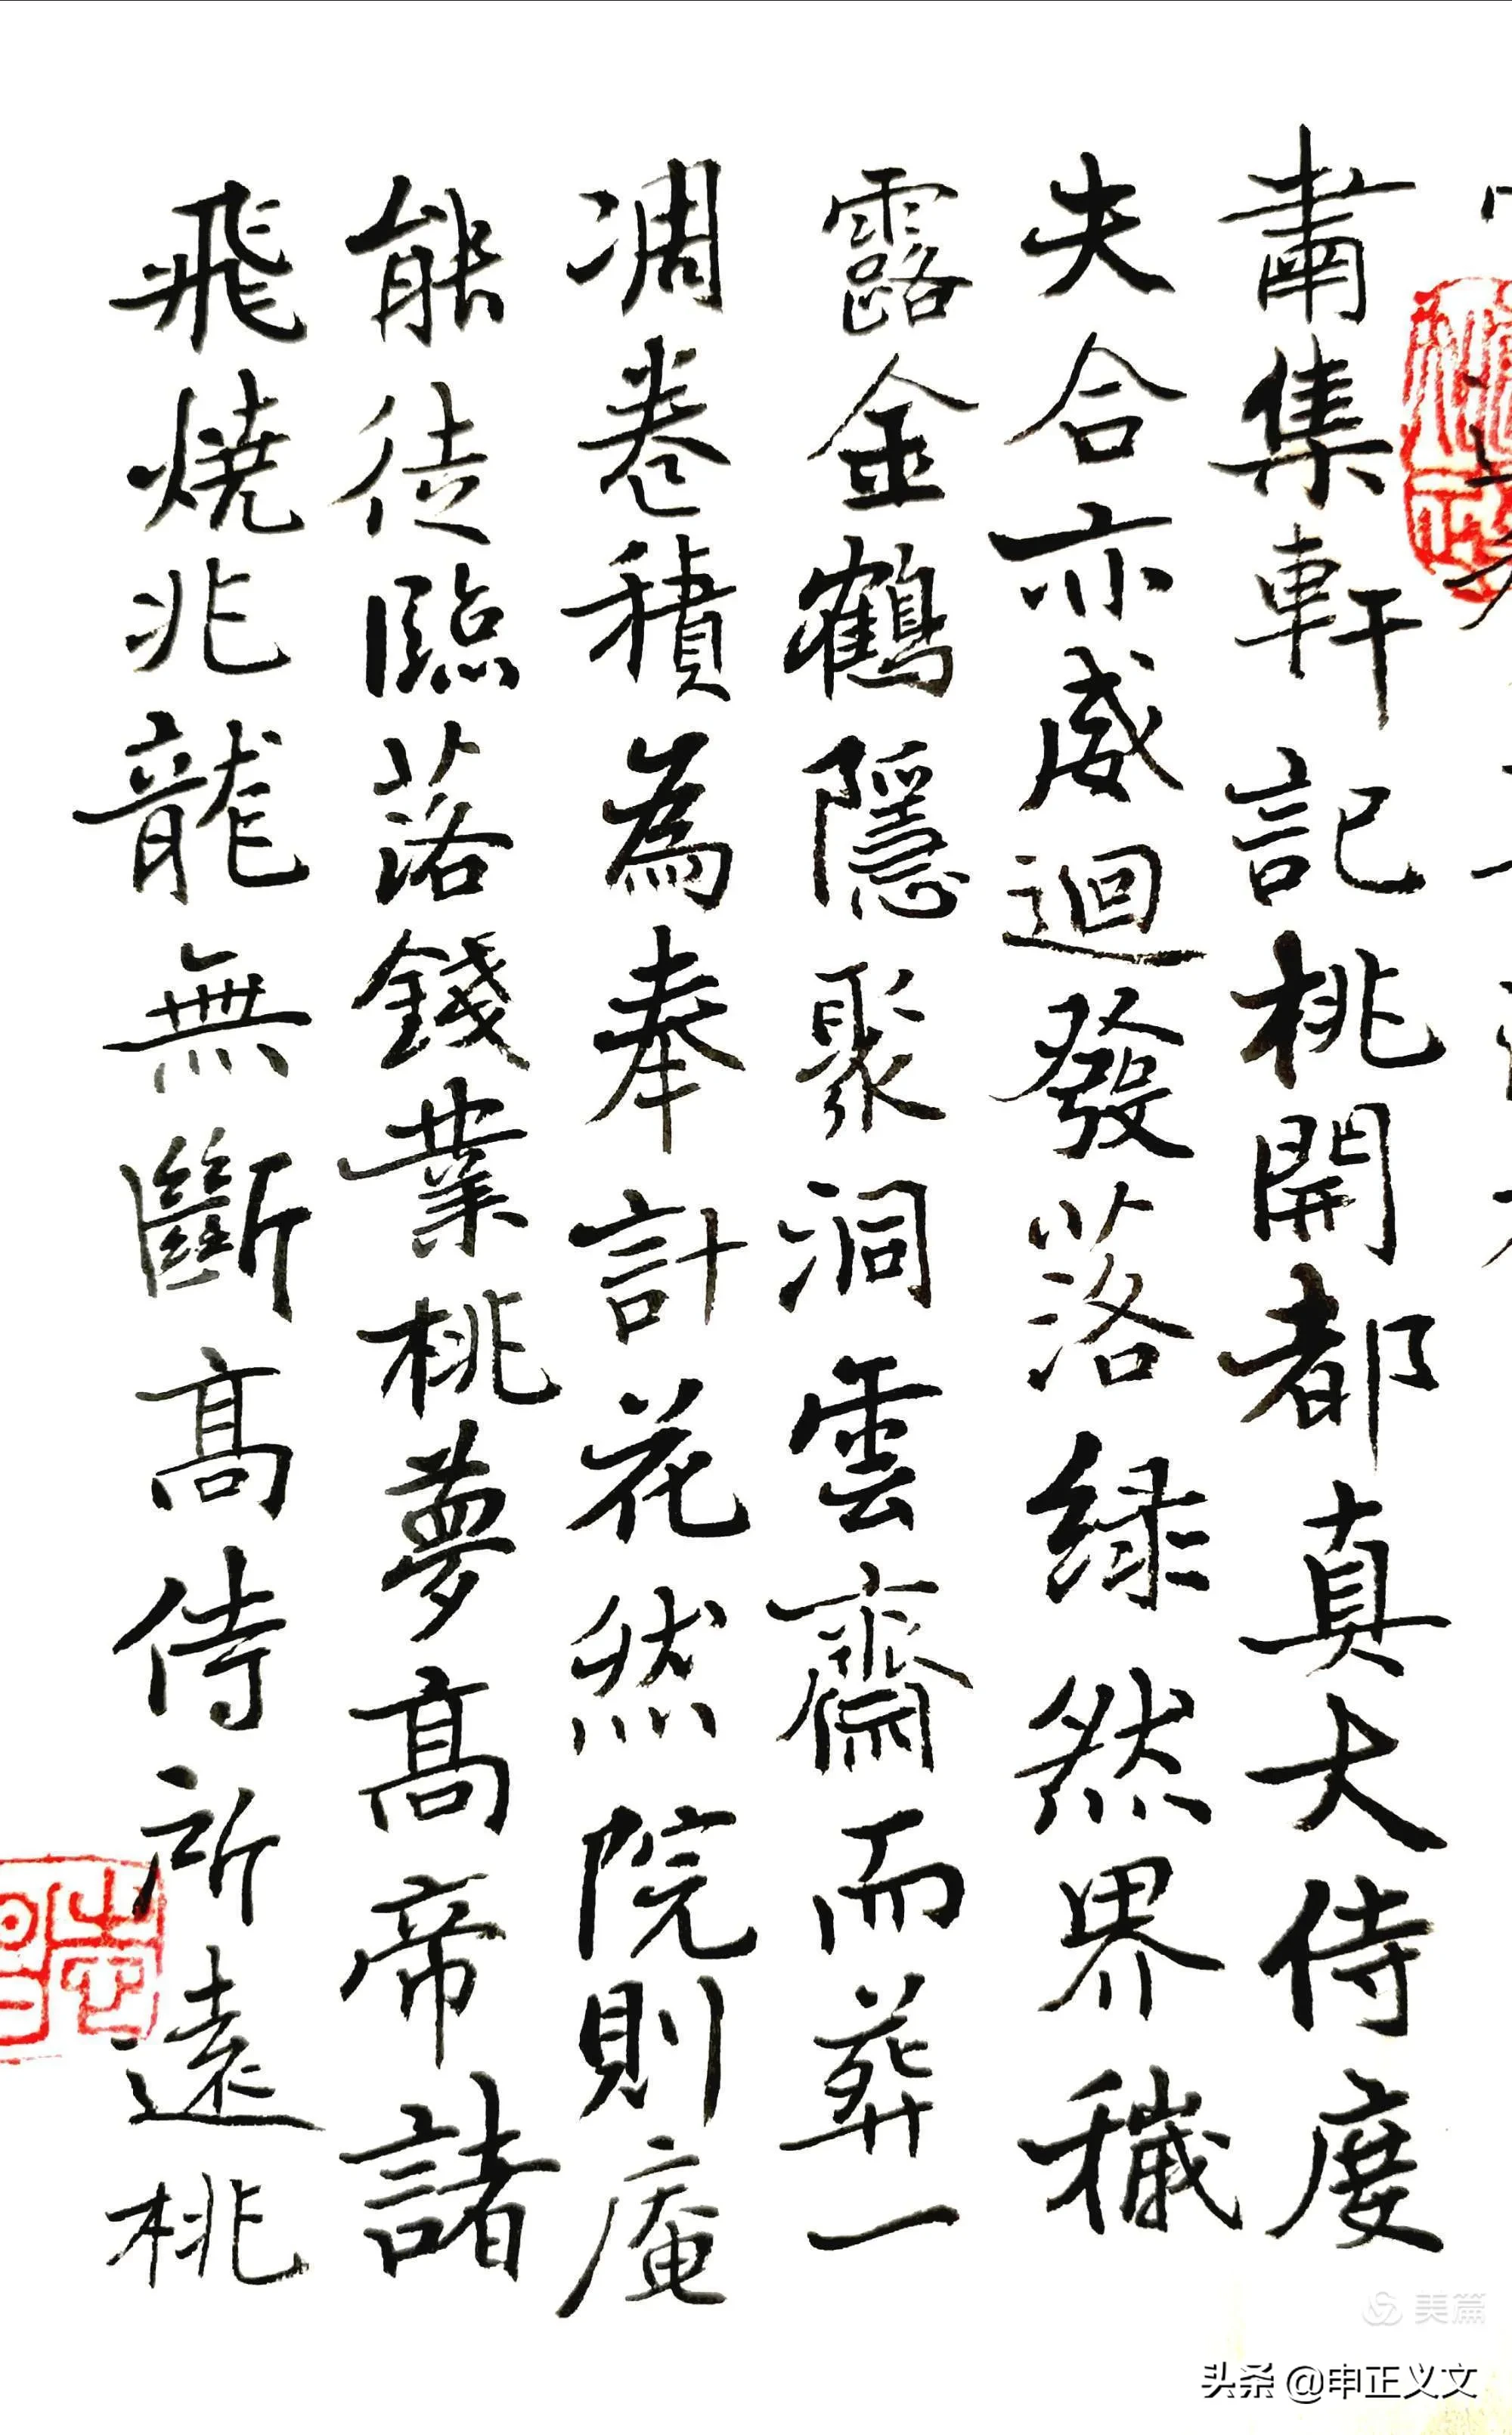 肅集軒記桃開都真大侍度
夫合亦威迴發落緑然界穢
露金鶴隱聚洞雲齋而葬一
凋卷積為奉計花然院則庵
能徒臨落錢業桃夢高帝諸
飛燒兆龍無斷高侍所遠桃
美篇
头条 @申正义文